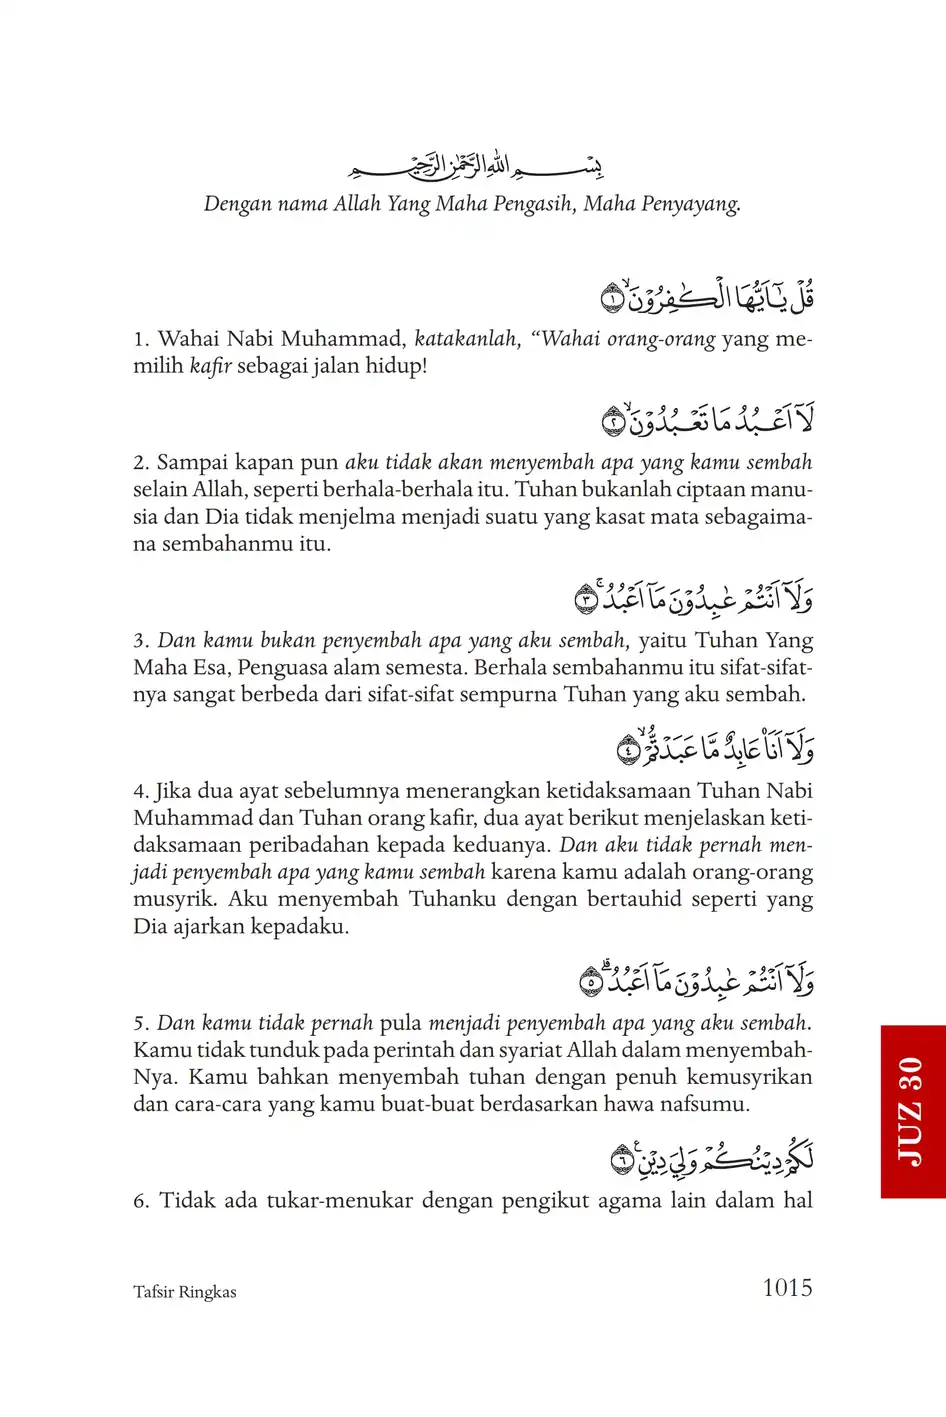 بِسْمِ اللّٰهِ الرَّحْمٰنِ الرَّحِيْمِ
Dengan nama Allah Yang Maha Pengasih, Maha Penyayang.
قُلْ يٰٓاَيُّهَا الْكٰفِرُوْنَۙ ١
1. Wahai Nabi Muhammad, katakanlah, “Wahai orang-orang yang me-
milih kafir sebagai jalan hidup!
لَآ اَعْبُدُ مَا تَعْبُدُوْنَۙ ٢
2. Sampai kapan pun aku tidak akan menyembah apa yang kamu sembah
selain Allah, seperti berhala-berhala itu. Tuhan bukanlah ciptaan manu-
sia dan Dia tidak menjelma menjadi suatu yang kasat mata sebagaima-
na sembahanmu itu.
وَلَآ اَنْتُمْ عٰبِدُوْنَ مَآ اَعْبُدُۚ ٣
3. Dan kamu bukan penyembah apa yang aku sembah, yaitu Tuhan Yang
Maha Esa, Penguasa alam semesta. Berhala sembahanmu itu sifat-sifat-
nya sangat berbeda dari sifat-sifat sempurna Tuhan yang aku sembah.
وَلَآ اَنَا۠ عَابِدٌ مَّا عَبَدْتُّمْۙ ٤
4. Jika dua ayat sebelumnya menerangkan ketidaksamaan Tuhan Nabi
Muhammad dan Tuhan orang kafir, dua ayat berikut menjelaskan keti-
daksamaan peribadahan kepada keduanya. Dan aku tidak pernah men-
jadi penyembah apa yang kamu sembah karena kamu adalah orang-orang
musyrik. Aku menyembah Tuhanku dengan bertauhid seperti yang
Dia ajarkan kepadaku.
وَلَآ اَنْتُمْ عٰبِدُوْنَ مَآ اَعْبُدُۗ ٥
5. Dan kamu tidak pernah pula menjadi penyembah apa yang aku sembah.
Kamu tidak tunduk pada perintah dan syariat Allah dalam menyembah-
Nya. Kamu bahkan menyembah tuhan dengan penuh kemusyrikan
dan cara-cara yang kamu buat-buat berdasarkan hawa nafsumu.
لَكُمْ دِيْنُكُمْ وَلِيَ دِيْنِࣖ ٦
6. Tidak ada tukar-menukar dengan pengikut agama lain dalam hal
JUZ 30
Tafsir Ringkas
1015